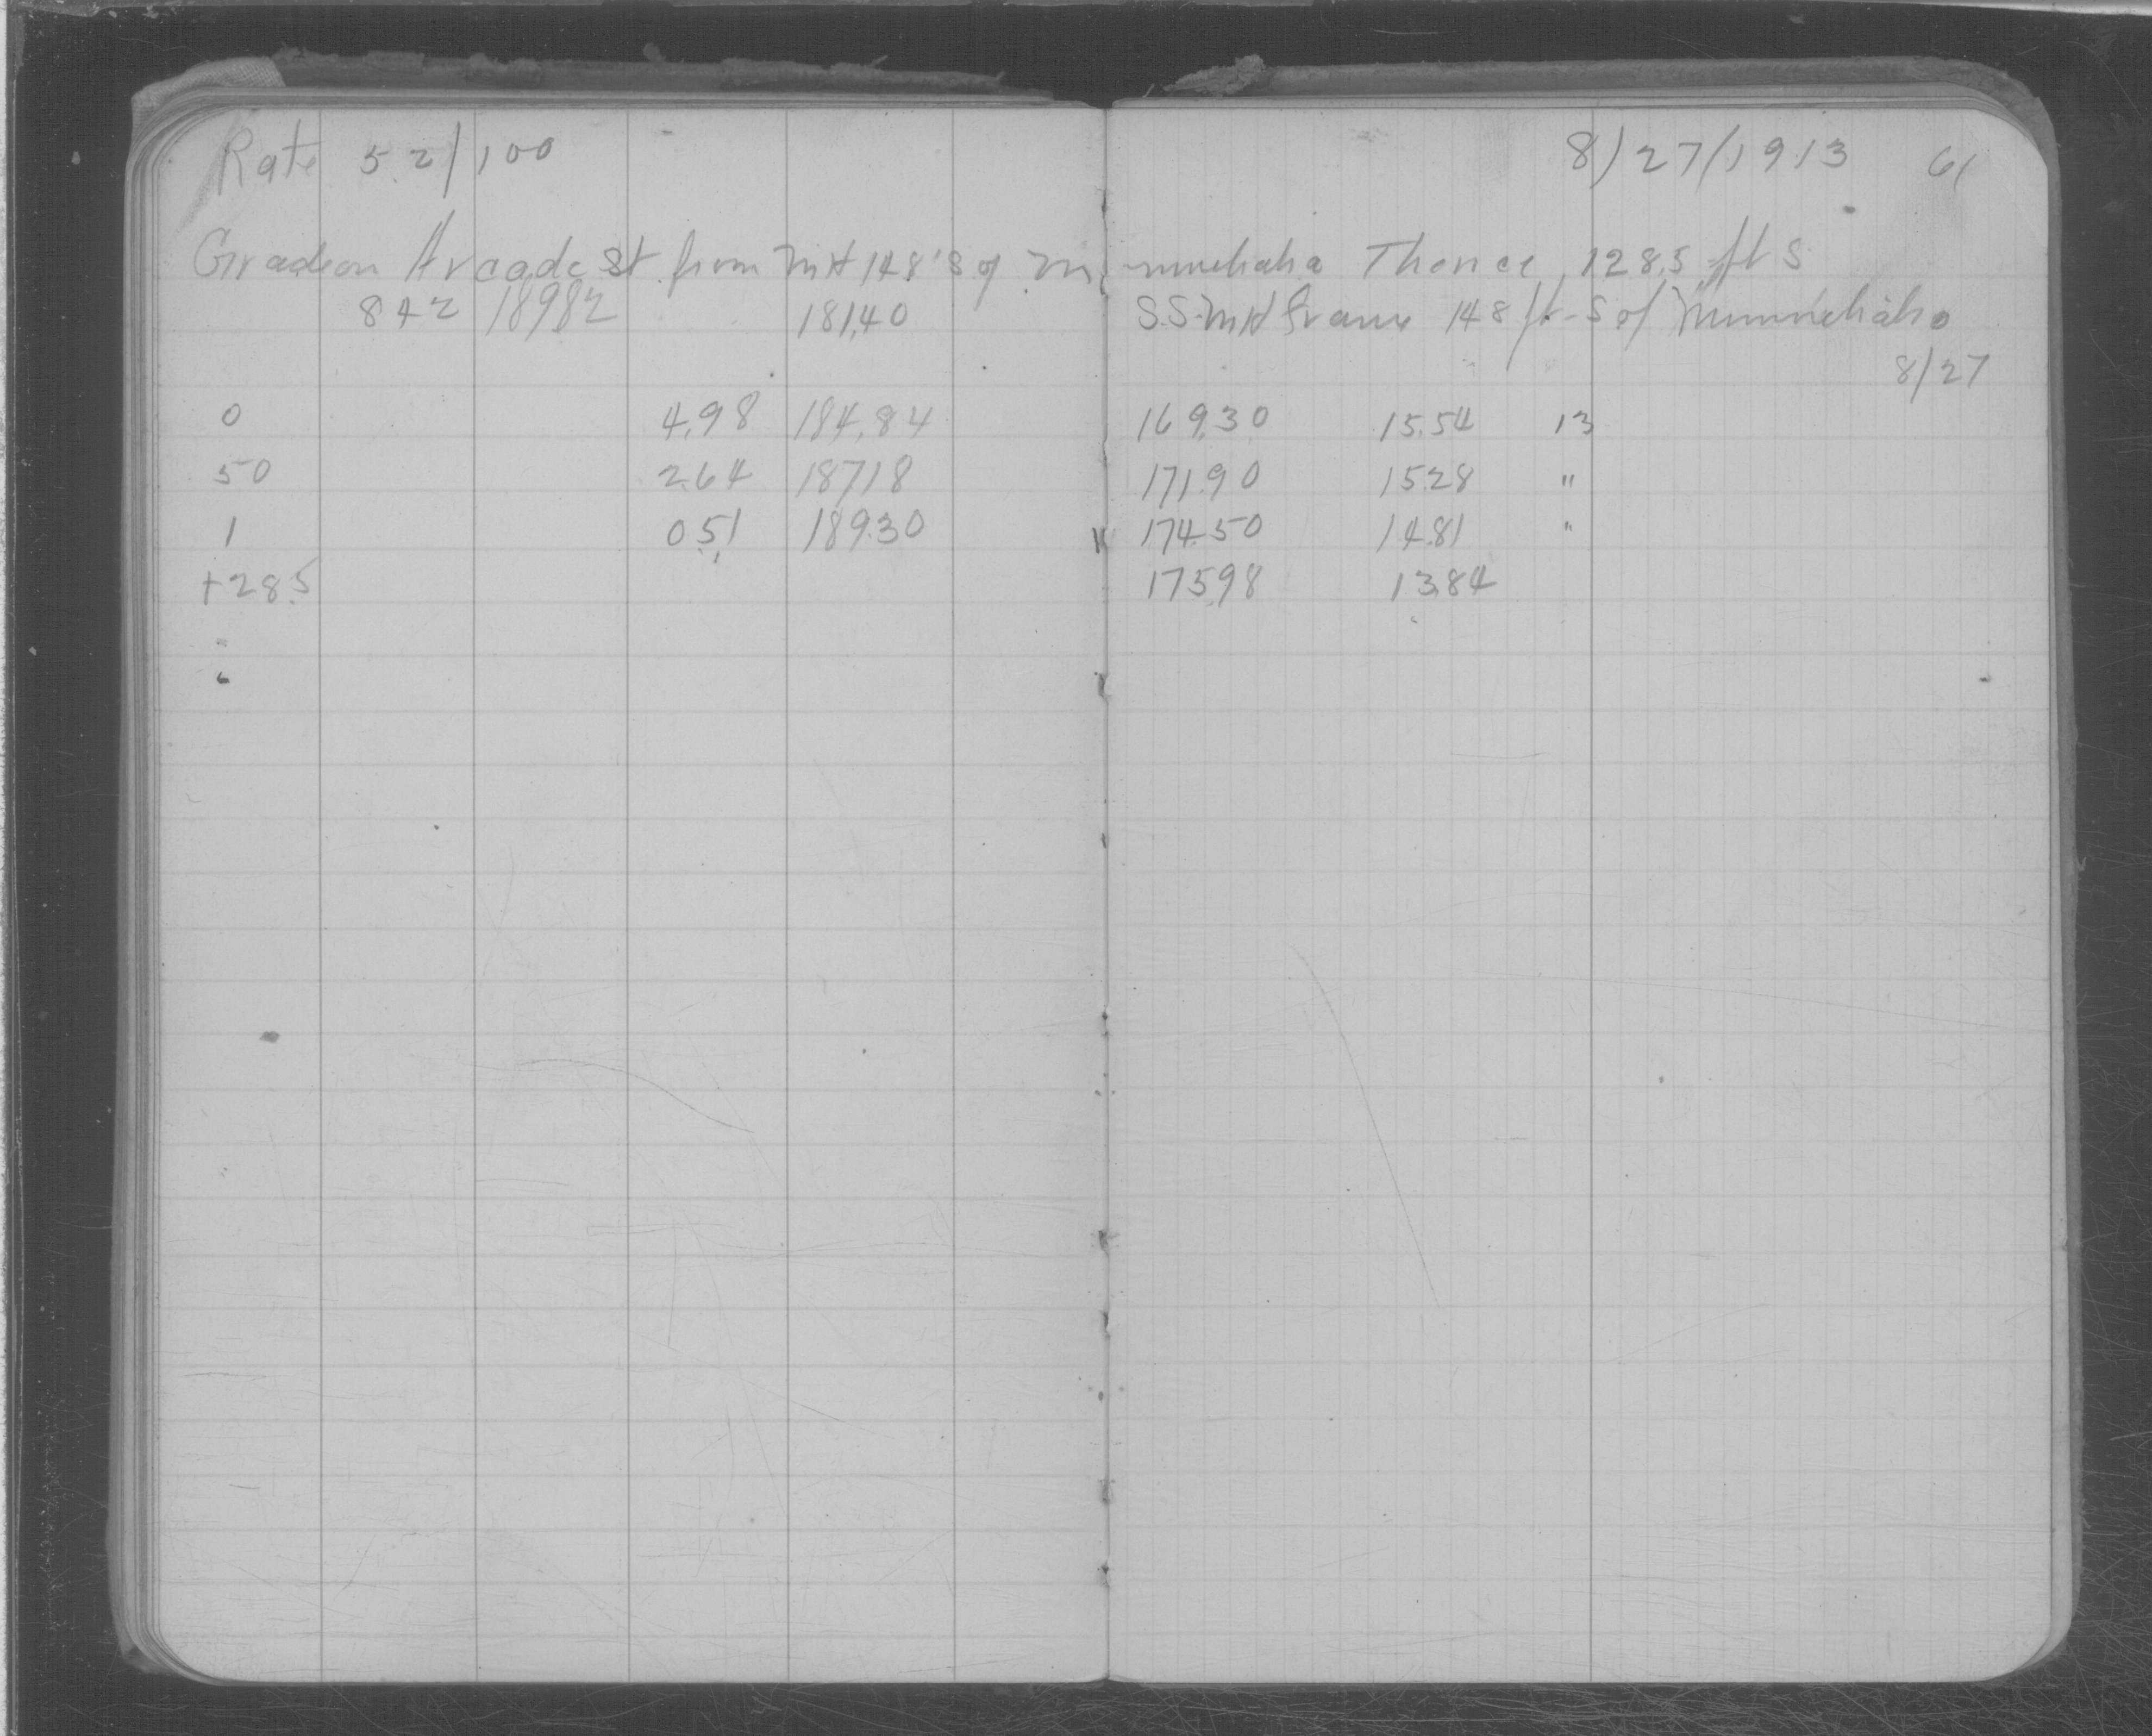 Rate 5.2/100 8/27/1913 61
Grade on Arcade St. from MH 148' S of Minnehaha Thence 128.5 ft S
842 18982 181.40 S.S. MH frame 148 ft. S of Minnehaha
8/27
0 4.98 184.84 169.30 15.54 13
50 2.64 187.18 171.90 15.28 "
1 0.51 189.30 174.50 14.81 "
+28.5 175.98 13.84